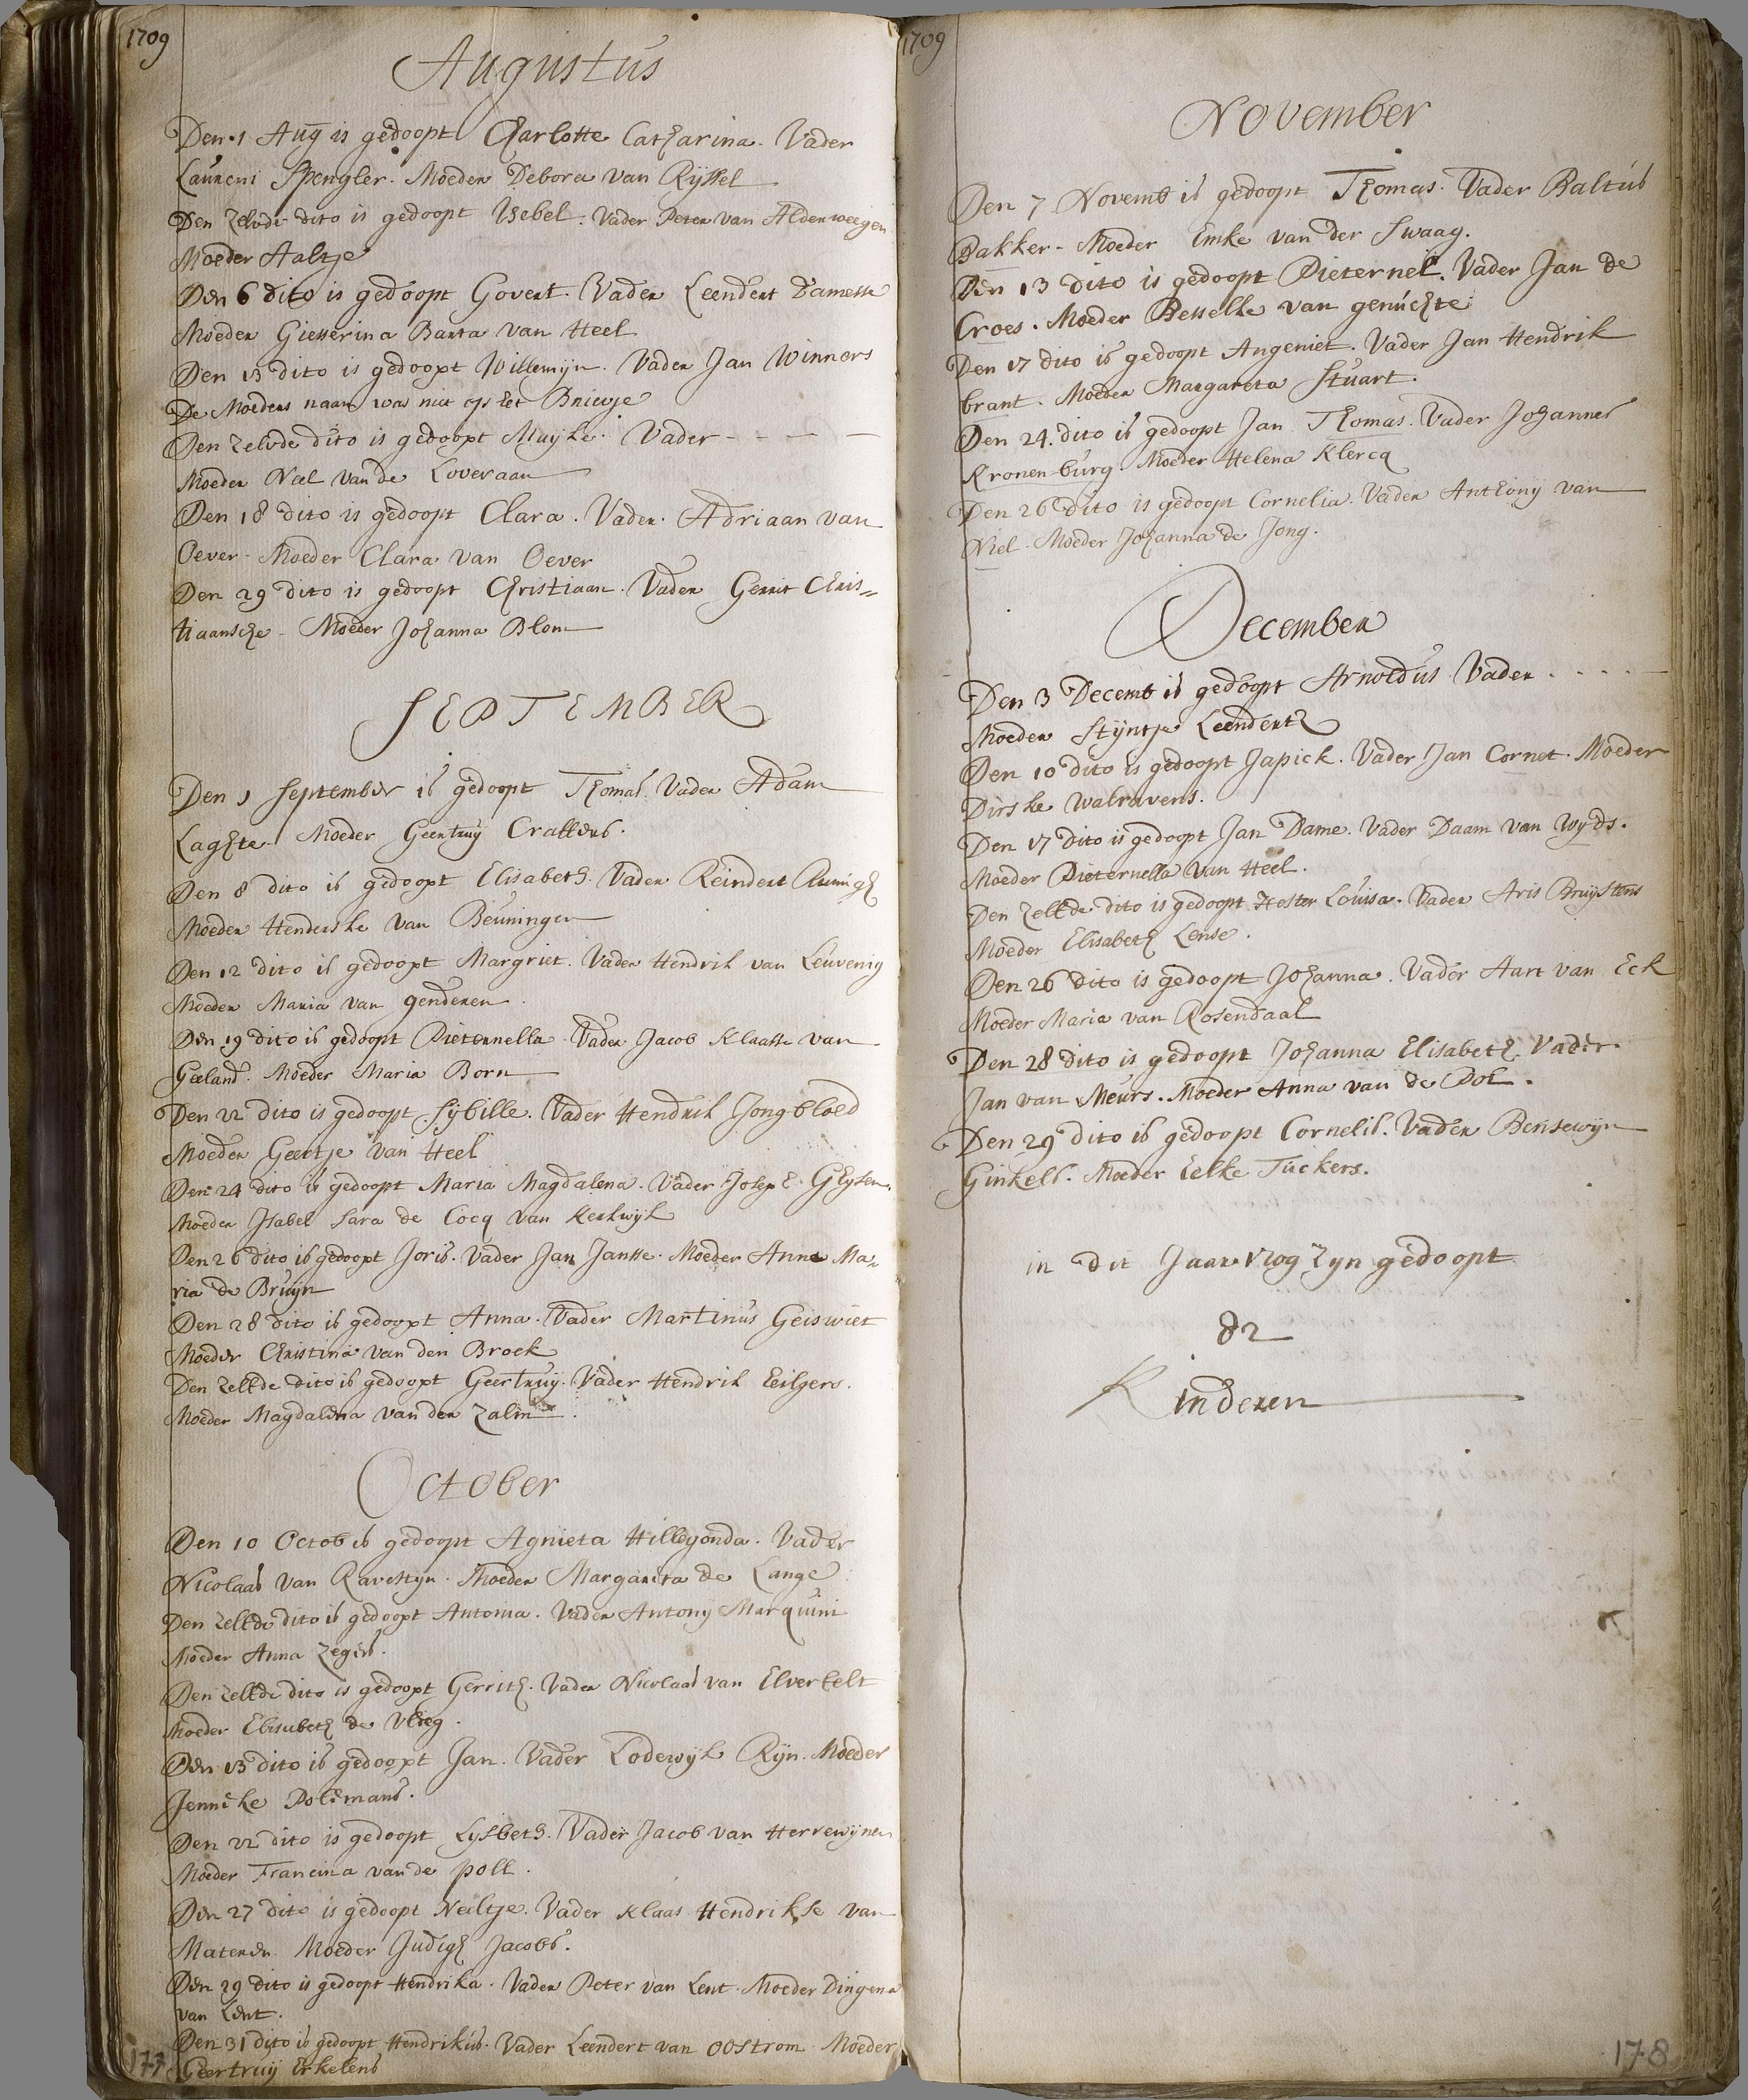 1709
Augustus
Den 1 Aug is gedoopt Charlotte Catharina. Vader
Laurens Spengler. Moeder Debora van Ryssel
Den zelvde dito is gedoopt Isebel. Vader Peter van Alderweegen
Moeder Aaltje
Den 6 dito is gedoopt Govert. Vader Leendert Damesse
Moeder Giesserina Barta van Heel
Den 13 dito is gedoopt Willemijn. Vader Jan Winners
De Moeders naam was niet op het Briewje
Den zelvde dito is gedoopt Muyke. Vader - - - -
Moeder Neel van de Loveraan
Den 18 dito is gedoopt Clara. Vader. Adriaan van
Oever. Moeder Clara van Oever
Den 29 dito is gedoopt Christiaan. Vader Gerrit Chris=
tiaansche - Moeder Johanna Blom
SEPTEMBER
Den 1 September is gedoopt Thomas. Vader Adam
Laghte. Moeder Geertruy Craffens.
Den 8 dito is gedoopt Elisabeth. Vader Reindert
Moeder Henderske van Beuningen
Den 12 dito is gedoopt Margriet. Vader Hendrik van Leuvenig
Moeder Maria van genderen.
Den 19 dito is gedoopt Pieternella. Vader Jacob Klaasse van
Geeland. Moeder Maria Born
Den 22 dito is gedoopt Sybille. Vader Hendrik Jongbloed
Moeder Geertje van Heel
Den 24 dito is gedoopt Maria Magdalena. Vader Joseph Ghysen.
Moeder Isabel Sara de Cocq van Kerkwijk
Den 26 dito is gedoopt Joris. Vader Jan Jansse. Moeder Anna Ma=
ria de Bruijn
Den 28 dito is gedoopt Anna. Vader Martinus Geiswiet
Moeder Christina van den Broek
Den zelfde dito is gedoopt Geertruij. Vader Hendrik Eilgers.
Moeder Magdalena van der Zalm.
October
Den 10 Octob is gedoopt Agnieta Hillegonda. Vader
Nicolaas van Ravestijn. Moeder Margarita de Lange
Den zelfde dito is gedoopt Antonia. Vader Antony Marquini
Moeder Anna Zegers.
Den zelfde dito is gedoopt Gerrith. Vader Nicolaas van Elverfelt
Moeder Elisabeth de Vlieg.
Den 13 dito is gedoopt Jan. Vader Lodewijk Rijn. Moeder
Jenneke Polsmans.
Den 22 dito is gedoopt Lysbeth. Vader Jacob van Herrewijnen
Moeder Francina van de poll.
Den 27 dito is gedoopt Neiltje. Vader Klaas Hendrikse van
Materen. Moeder Judigh Jacobs.
Den 29 dito is gedoopt Hendrika. Vader Peter van Lent. Moeder Dingena
van Lent.
Den 31 dito is gedoopt Hendrikus. Vader Leendert van Oostrom Moeder
Geertruij Erkelens
177
1709
November
Den 7 Novemb is gedoopt Thomas. Vader Baltus
Bakker - Moeder Emke van der Swaag.
Den 13 dito is gedoopt Pieternel. Vader Jan de
Croes. Moeder Besselke van genuchte
Den 17 dito is gedoopt Angeniet. Vader Jan Hendrik
brant. Moeder Margareta Stuart.
Den 24. dito is gedoopt Jan Thomas. Vader Johannes
Kronenburg. Moeder Helena Klercq
Den 26 dito is gedoopt Cornelia. Vader Anthony van
Niel. Moeder Johanna de Jong.
December
Den 3 Decemb is gedoopt Arnoldus Vader . . . .
Moeder Stijntje Leenderts
Den 10 dito is gedoopt Japick. Vader Jan Cornet. Moeder
Dirske Walravens.
Den 17 dito is gedoopt Jan Dame. Vader Daam van Wyds.
Moeder Pieternella van Heel.
Den zelfde dito is gedoopt Hester Louisa. Vader Aris Bruystens
Moeder Elisabeth Lense.
Den 26 dito is gedoopt Johanna. Vader Aart van Eck
Moeder Maria van Rosendaal
Den 28 dito is gedoopt Johanna Elisabeth. Vader.
Jan van Meurs. Moeder Anna van de Pol.
Den 29 dito is gedoopt Cornelis. Vader Bensewijn
Ginkels. Moeder Eelke Tuckers.
in dit Jaar 1709 zyn gedoopt
82
Kinderen
178